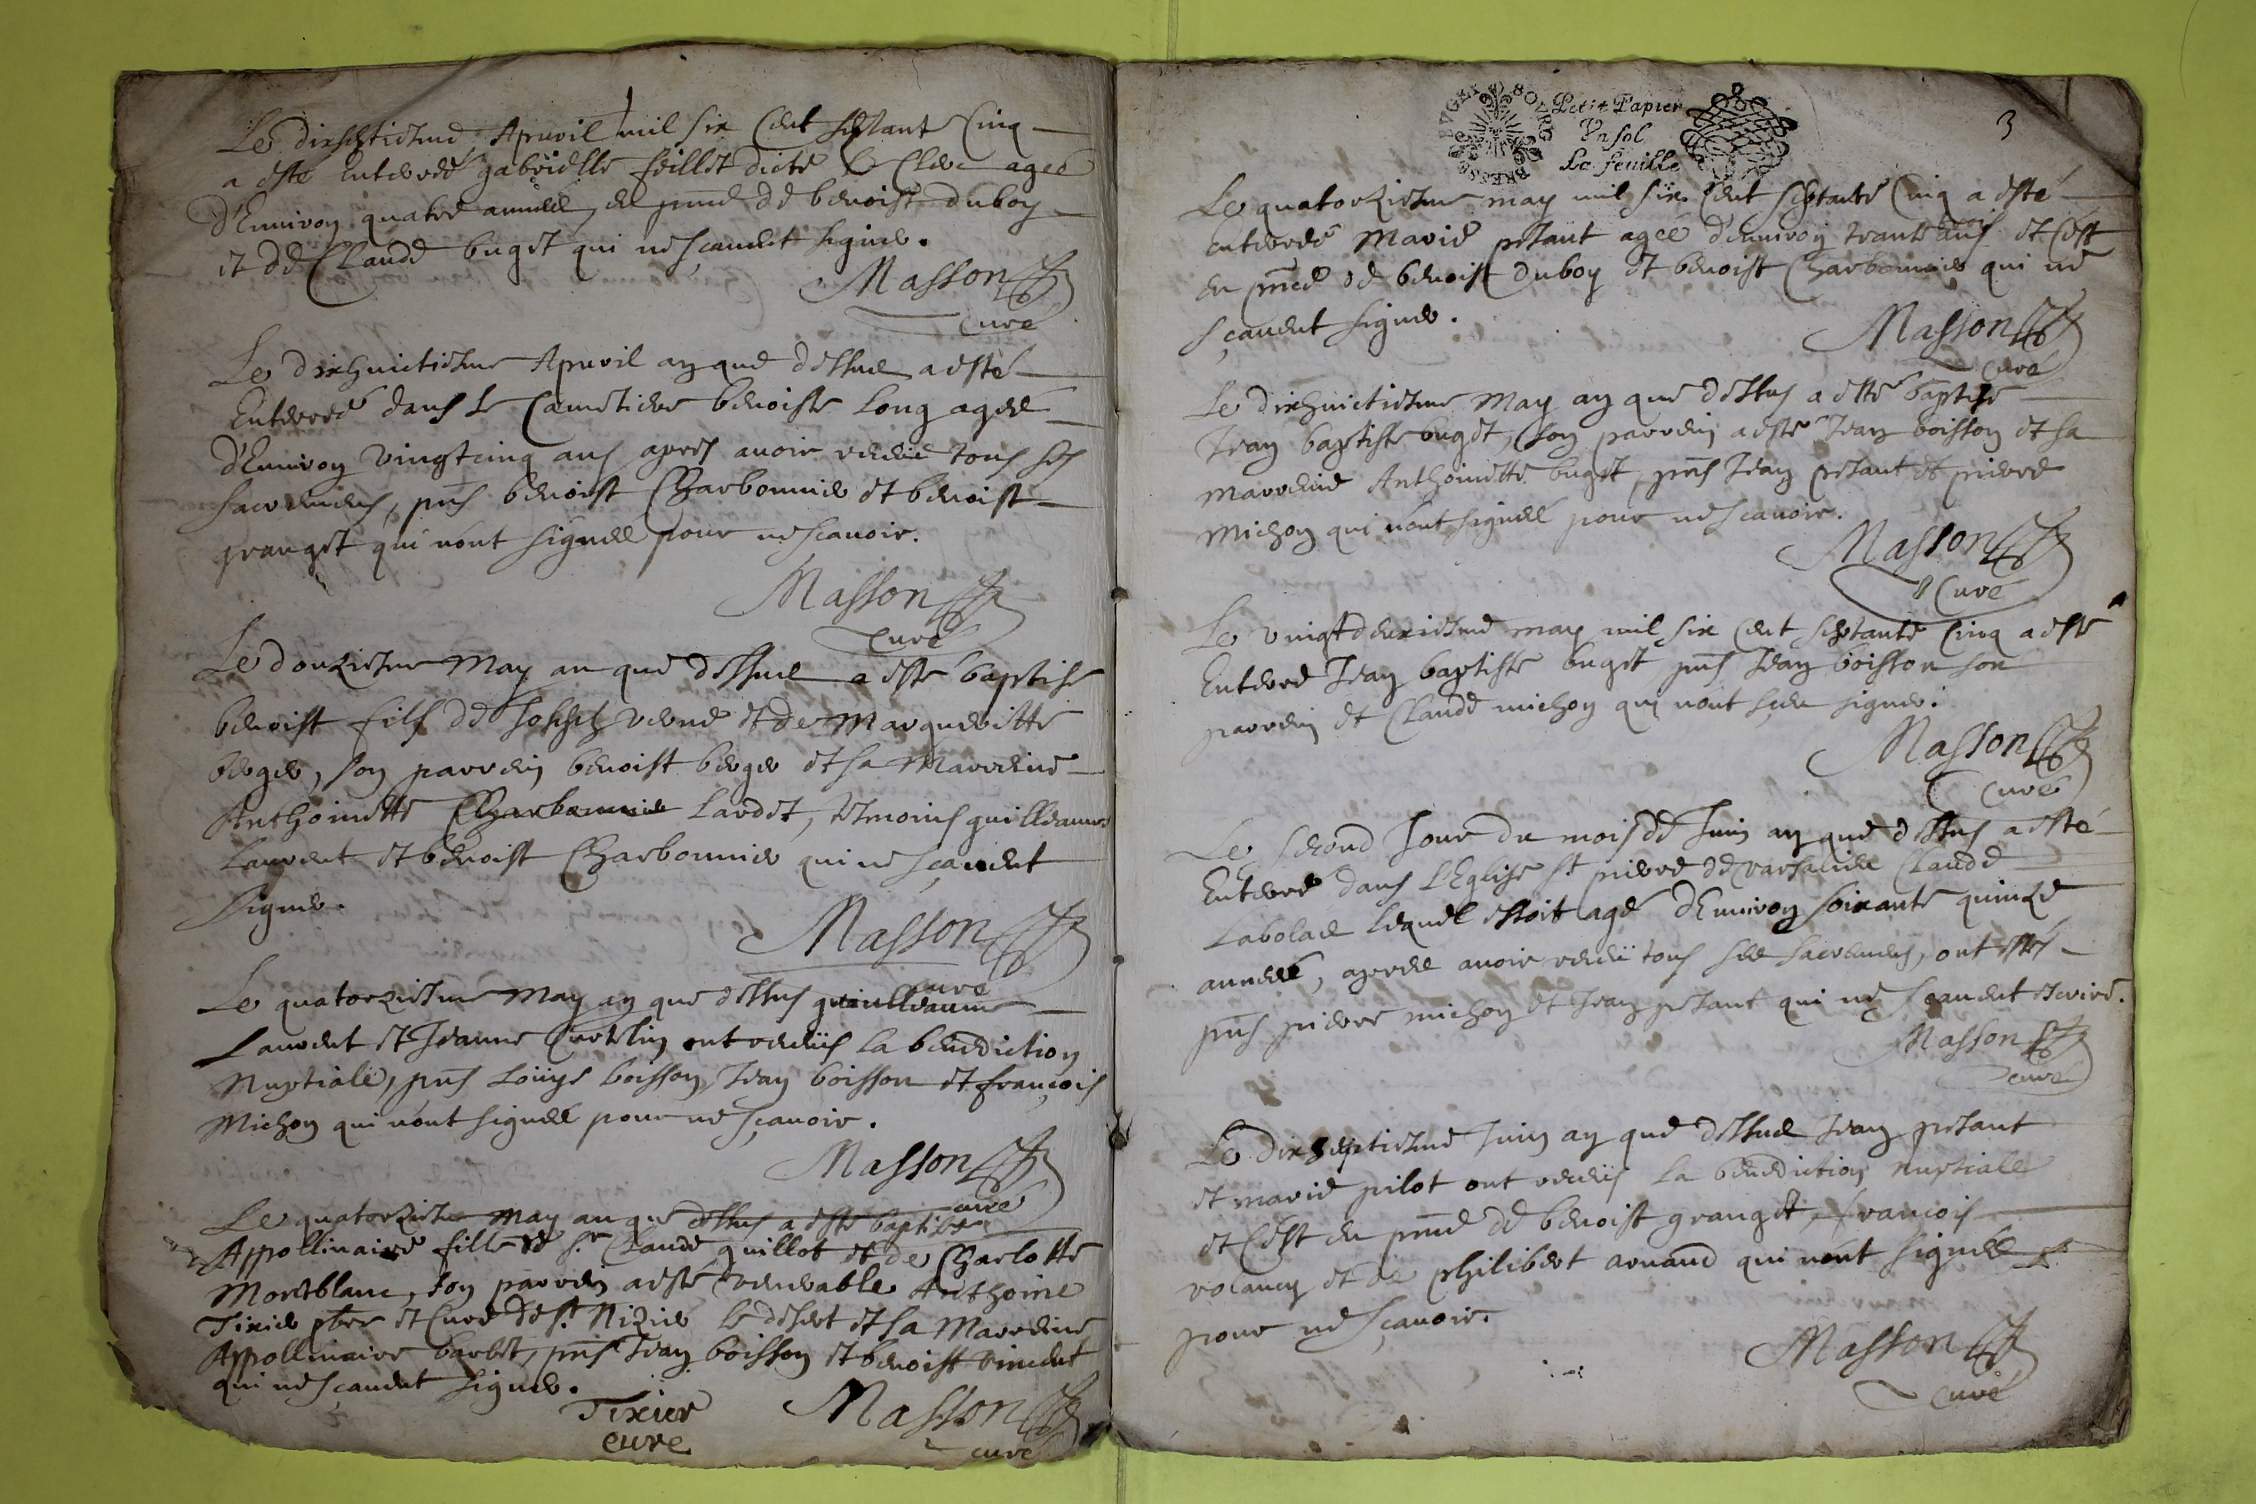 Le dixseptiesme Apuril mil six cent septante Cinq
a esté enterreé gabrielle feillet dicte Le Clerc ageé
d'Enuiron quatre anneés, en pnce de benoist duboy
et de Claude buget qui ne sçauent signer.
Masson
curé
Le dixhuictiesme Apuril an que dessus a esté
Enterreé dans le Cametiere benoiste Long ageé
d'Enuiron vingtcinq ans apres auoir receü tous ses
sacremens, pns benoist Charbonnier et benoist
granget qui n'ont signés pour ne scauoir.
Masson
curé
Le douziesme May an que dessus a esté baptisé
benoist fils de Joseph verne et de Margueritte
berger, son parrein benoist berger et sa Marreine
Anthoinette Charbonnier Lardet, tesmoins guilleaume
Laurent et benoist Charbonnier qui ne sçauent
signer.
Masson
curé
Le quatorziesme May an que dessus guilleaume
Laurent et Jeanne Curtelin ont receüs la benediction
Nuptiale, pns Loüys boisson, Jean boisson et françois
Michon qui n'ont signés pour ne sçauoir.
Masson
curé
Le quatorziesme May an que dessus a esté baptiseé
Appollinaire fille de Sr. Claude guillot et de Charlotte
Montblanc, son parrein a esté venerable Anthoine
Tixier pbre et Curé de St. Nizier le desert et sa Marreine
Appollinaire barlet, pns Jean boisson et benoist vincent
qui ne sçauent signer.
Tixier
curé
Masson
curé
BVGEY BOVRG BRESSE
Petit Papier
Vn sol
La feuille
3
Le quatorziesme may mil six Cent septante Cinq a esté
enterreé Marie petaut ageé d'enuiron trante ans et C'est
en pnce de benoist duboy et benoist Charbonnier qui ne
sçauent signer.
Masson
curé
Le dixhuictiesme May an que dessus a esté baptisé
Jean baptiste buget, son parrein a esté Jean boisson et sa
marreine Anthoinette buget, pns Jean petaut et pierre
Michon qui n'ont signés pour ne scauoir.
Masson
Curé
Le vingtdeuxiesme may mil six Cent septante Cinq a esté
Enterré Jean baptiste buget pns Jean boisson son
parrein et Claude michon qui n'ont sceu signer.
Masson
curé
Le second Jour du mois de Juin an que dessus a esté
Enterré dans L'Eglise St pierre de Versalieu Claude
Labolas Lequel estoit agé d'Enuiron soixante quinze
anneés, apres auoir receü tous ses sacremens, ont estés
pns pierre michon et Jean petaut qui ne sçauent escrire.
Masson
curé
Le dixseptiesme Juin an que dessus Jean petaut
et marie pilot ont receüs la benediction nuptiale
et C'est en pnce de benoist granget, françois
volancy et de philibert arnaud qui n'ont signés
pour ne sçauoir.
Masson
curé